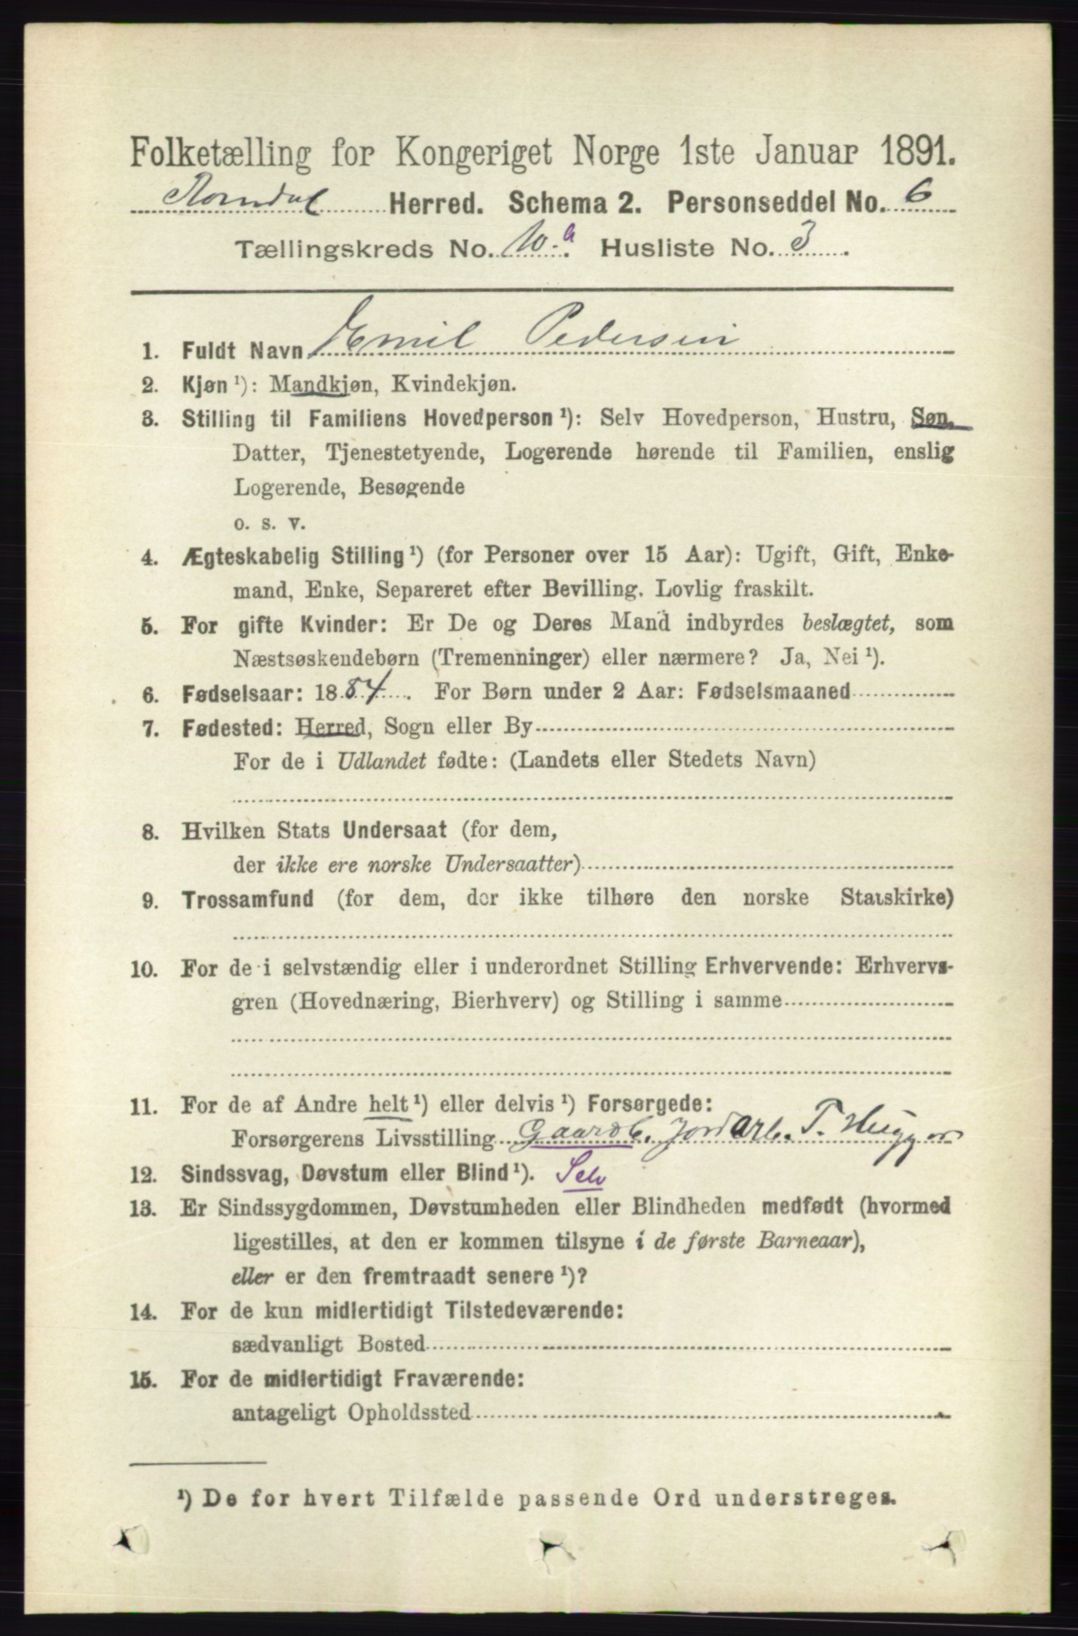 Folketælling for Kongeriget Norge 1ste Januar 1891.
Romdal Herred. Schema 2. Personseddel No. 6
Tællingskreds No. 10.a Husliste No. 3.
1. Fuldt Navn Emil Pedersen
2. Kjøn¹): Mandkjøn, Kvindekjøn.
3. Stilling til Familiens Hovedperson¹): Selv Hovedperson, Hustru, Søn,
Datter, Tjenestetyende, Logerende hørende til Familien, enslig
Logerende, Besøgende
o. s. v.
4. Ægteskabelig Stilling¹) (for Personer over 15 Aar): Ugift, Gift, Enke-
mand, Enke, Separeret efter Bevilling. Lovlig fraskilt.
5. For gifte Kvinder: Er De og Deres Mand indbyrdes beslægtet, som
Næstsøskendebørn (Tremenninger) eller nærmere? Ja, Nei¹).
6. Fødselsaar: 1884. For Børn under 2 Aar: Fødselsmaaned
7. Fødested: Herred, Sogn eller By
For de i Udlandet fødte: (Landets eller Stedets Navn)
8. Hvilken Stats Undersaat (for dem,
der ikke ere norske Undersaatter)
9. Trossamfund (for dem, der ikke tilhøre den norske Statskirke)
10. For de i selvstændig eller i underordnet Stilling Erhvervende: Erhvervs-
gren (Hovednæring, Bierhverv) og Stilling i samme
11. For de af Andre helt¹) eller delvis¹) Forsørgede:
Forsørgerens Livsstilling Gaardb. Jordarb. T. Hugger
12. Sindssvag, Døvstum eller Blind¹). Selv
13. Er Sindssygdommen, Døvstumheden eller Blindheden medfødt (hvormed
ligestilles, at den er kommen tilsyne i de første Barneaar),
eller er den fremtraadt senere¹)?
14. For de kun midlertidigt Tilstedeværende:
sædvanligt Bosted
15. For de midlertidigt Fraværende:
antageligt Opholdssted
¹) De for hvert Tilfælde passende Ord understreges.